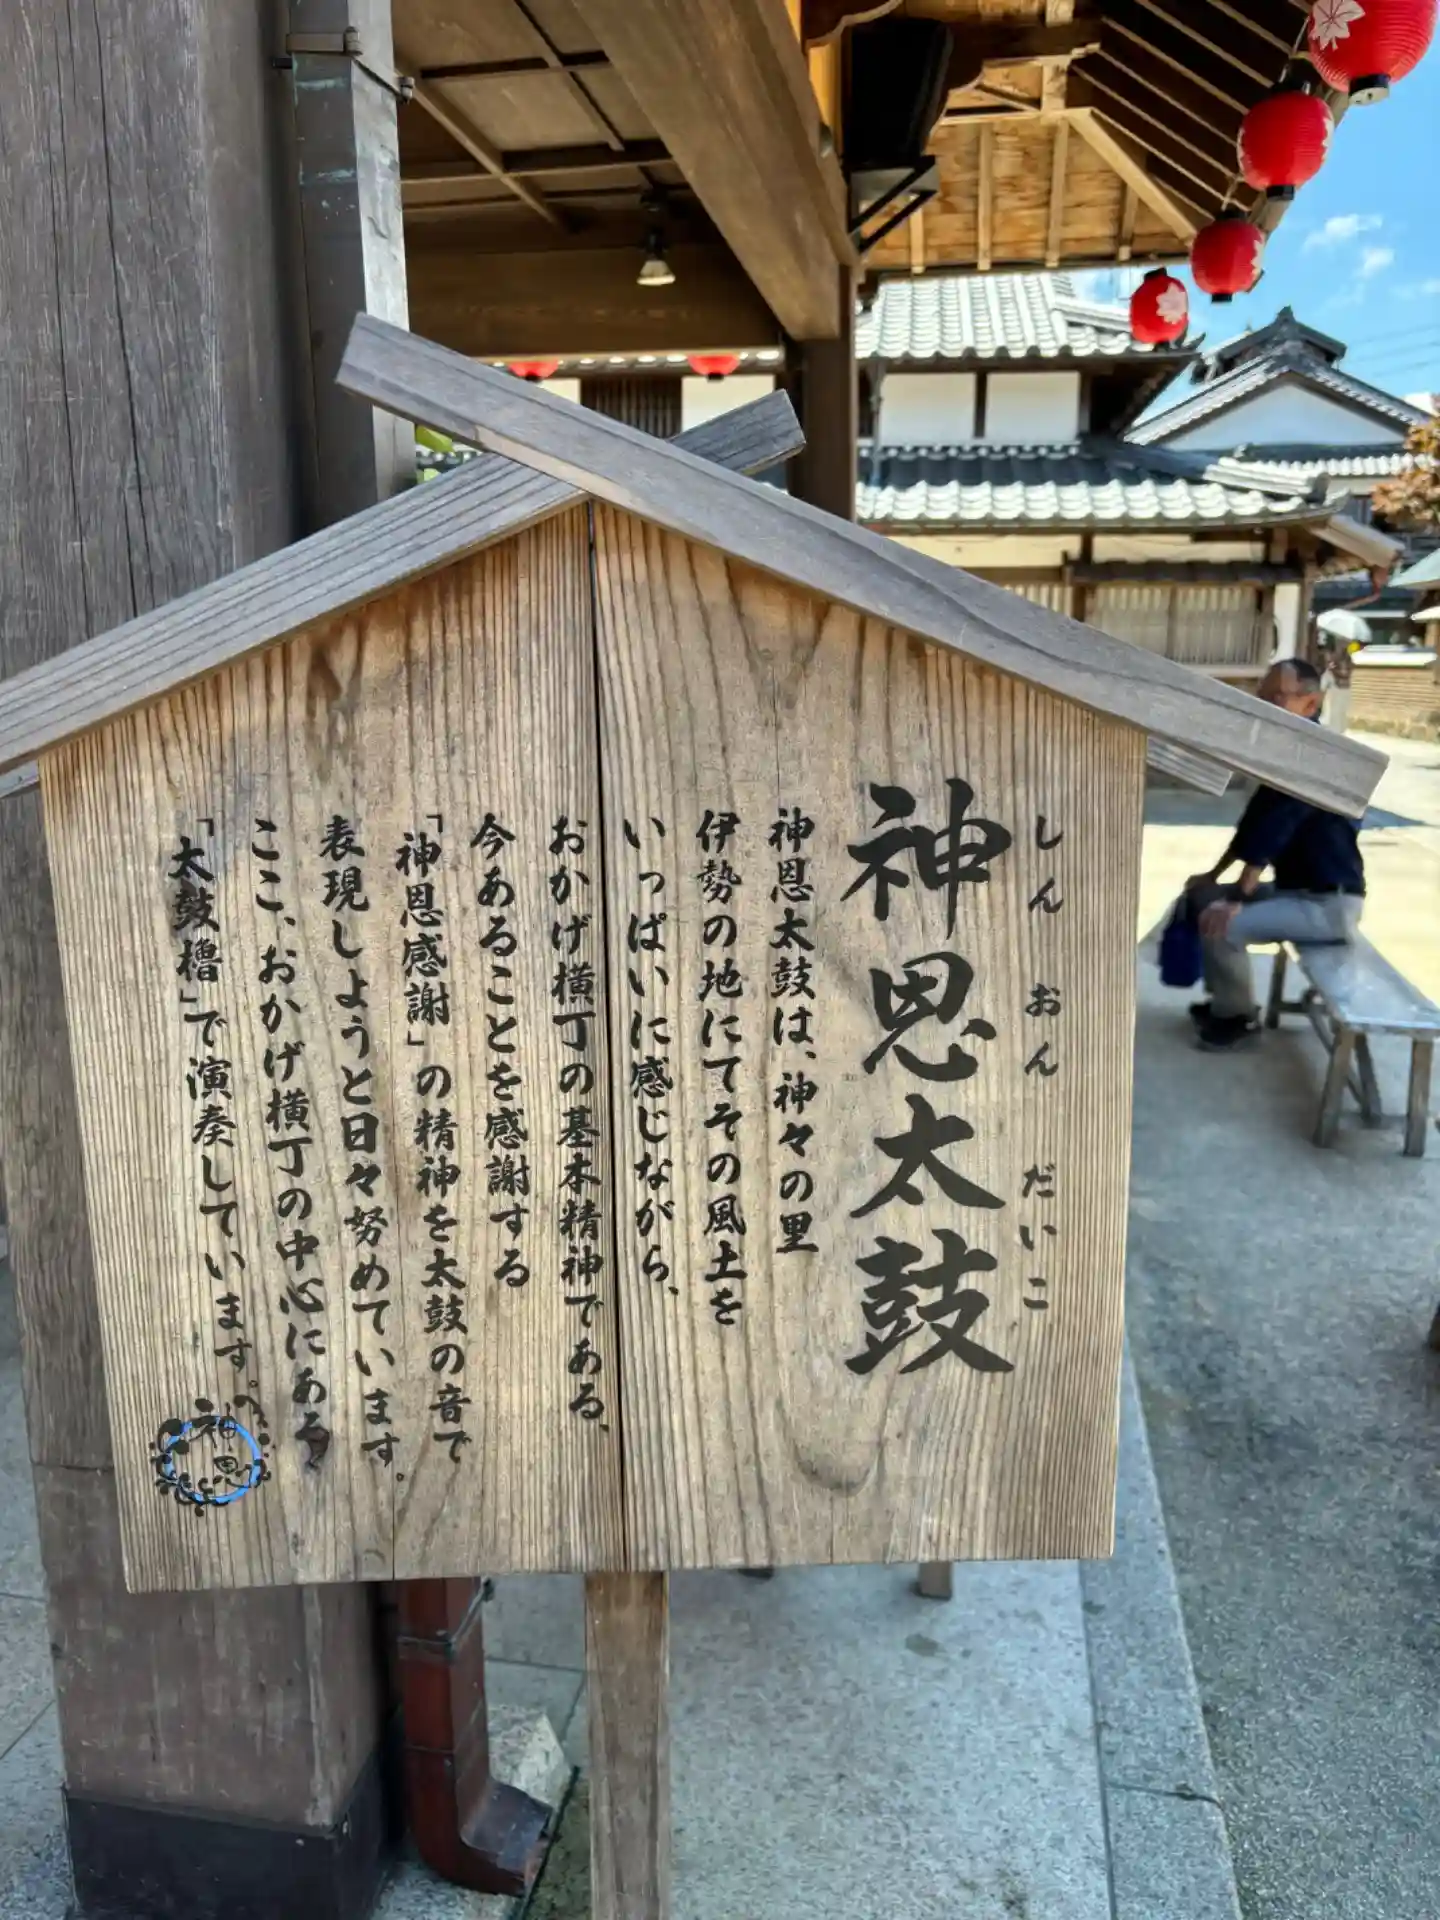 しん おん だいこ
神恩太鼓
神恩太鼓は、神々の里
伊勢の地にてその風土を
いっぱいに感じながら、
おかげ横丁の基本精神である、
今あることを感謝する
「神恩感謝」の精神を太鼓の音で
表現しようと日々努めています。
ここ、おかげ横丁の中心にある
「太鼓櫓」で演奏しています。
神恩